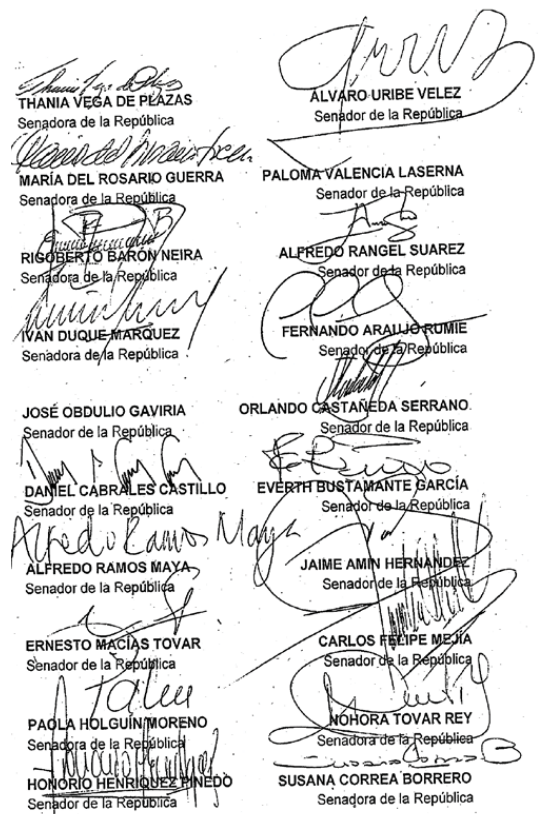 THANIA VEGA DE PLAZAS
Senadora de la República
MARÍA DEL ROSARIO GUERRA
Senadora de la República
RIGOBERTO BARÓN NEIRA
Senadora de la República
IVAN DUQUE MARQUEZ
Senadora de la República
JOSÉ OBDULIO GAVIRIA
Senador de la República
DANIEL CABRALES CASTILLO
Senador de la República
Alfredo Ramos Maya
ALFREDO RAMOS MAYA
Senador de la República
ERNESTO MACÍAS TOVAR
Senador de la República
PAOLA HOLGUÍN MORENO
Senadora de la República
HONORIO HENRIQUEZ PINEDO
Senador de la República
ÁLVARO URIBE VELEZ
Senador de la República
PALOMA VALENCIA LASERNA
Senador de la República
ALFREDO RANGEL SUAREZ
Senador de la República
FERNANDO ARAUJO RUMIE
Senador de la República
ORLANDO CASTAÑEDA SERRANO
Senador de la República
EVERTH BUSTAMANTE GARCÍA
Senador de la República
JAIME AMIN HERNANDEZ
Senador de la República
CARLOS FELIPE MEJÍA
Senador de la República
NOHORA TOVAR REY
Senador de la República
SUSANA CORREA BORRERO
Senadora de la República